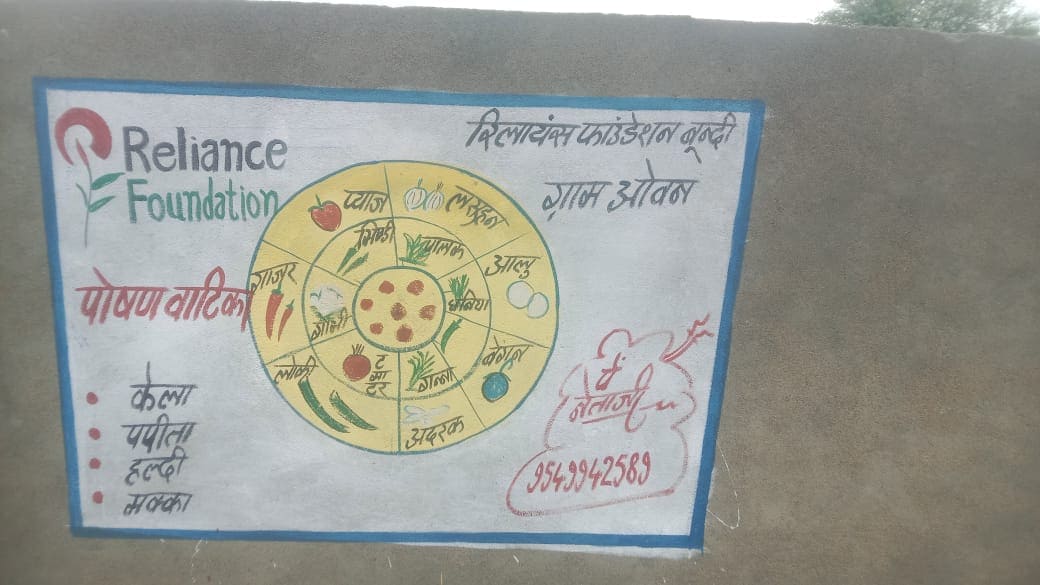 Reliance
Foundation
रिलायंस फाउंडेशन बून्दी
ग्राम ओवन
पोषण वाटिका
केला
पपीता
हल्दी
मक्का
प्याज
लहसुन
भिण्डी
पालक
गाजर
आलु
धनिया
गोभी
टमाटर
गन्ना
बेंगन
लोकी
अदरक
पें
नेताजी
9549942589